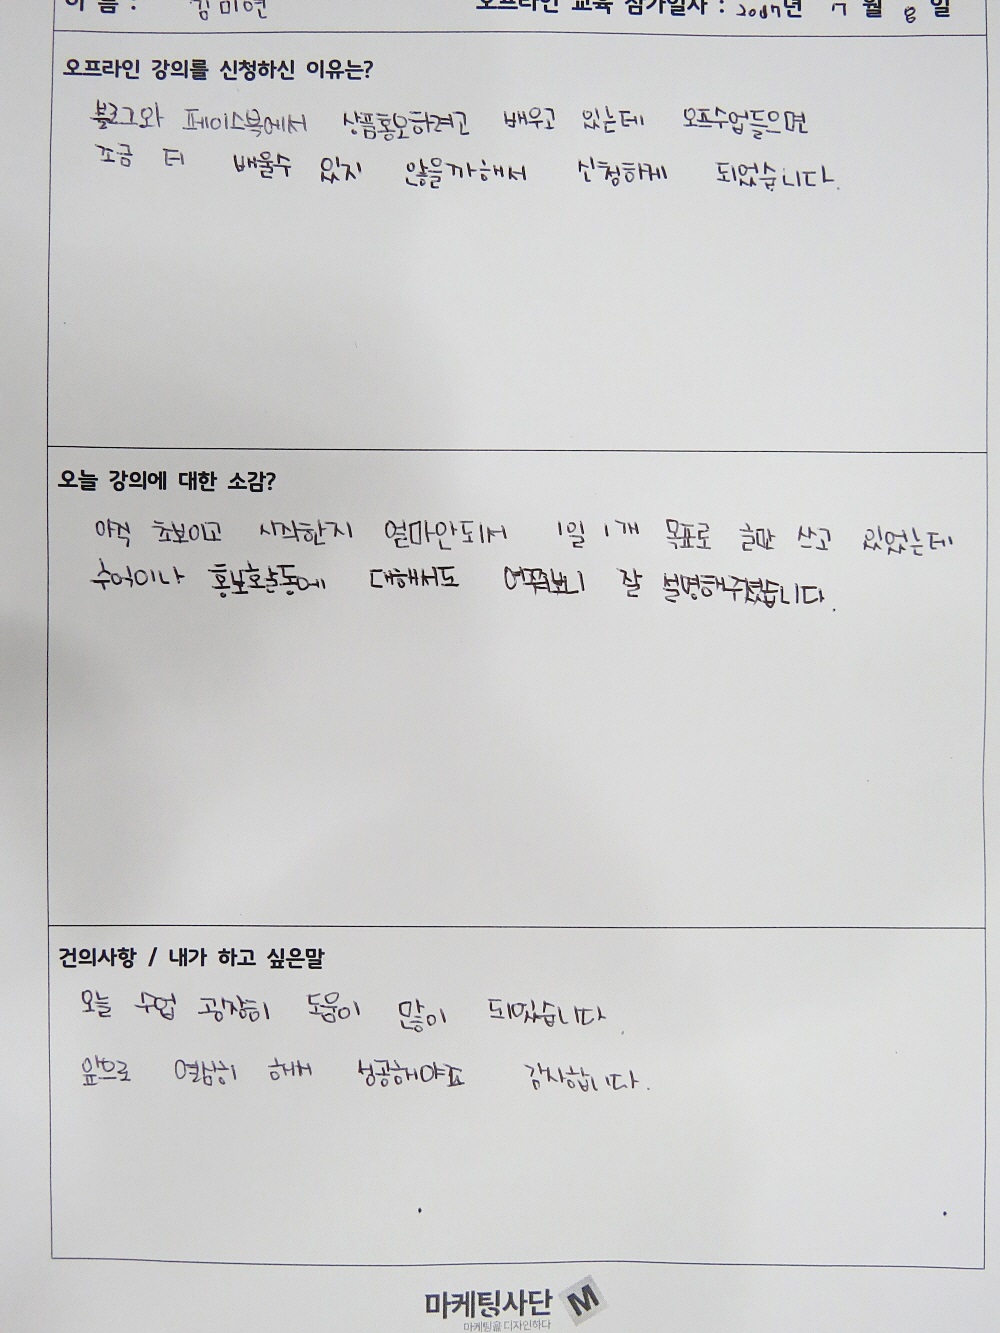 이 름 : 김미연 오프라인 교육 참가일자 : 2017년 7월 8일
오프라인 강의를 신청하신 이유는?
블로그와 페이스북에서 상품홍보하려고 배우고 있는데 오프수업들으면
조금 더 배울수 있지 않을까해서 신청하게 되었습니다.
오늘 강의에 대한 소감?
아직 초보이고 시작한지 얼마안되서 1일 1개 목표로 글만 쓰고 있었는데
수익이나 홍보활동에 대해서도 여쭤보니 잘 설명해주셨습니다.
건의사항 / 내가 하고 싶은말
오늘 수업 굉장히 도움이 많이 되었습니다.
앞으로 열심히 해서 성공해야죠 감사합니다.
마케팅사단 M
마케팅을 디자인하다